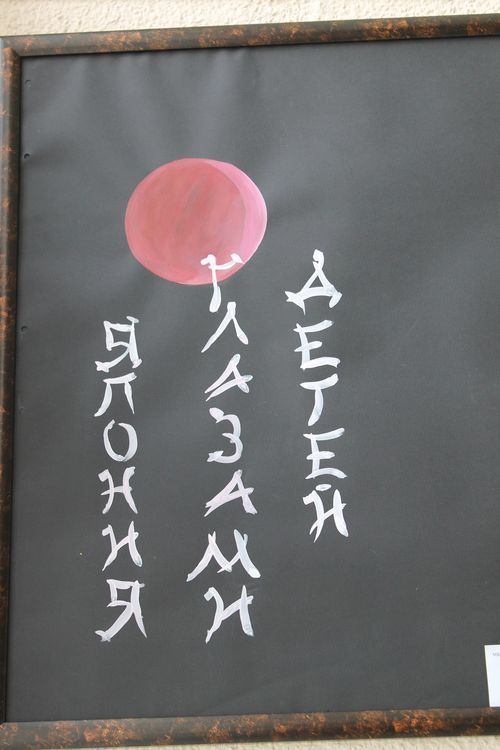 ЯПОНИЯ
ГЛАЗАМИ
ДЕТЕЙ